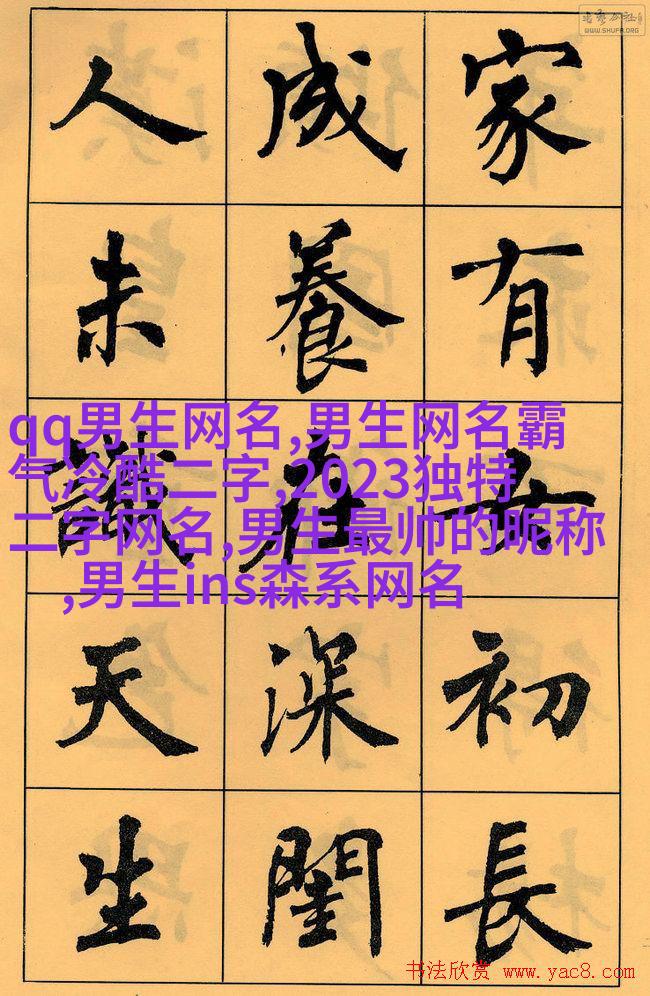 WWW.SHUFA.ORG
家有女初長
成養在深閨
人未識天生
qq男生网名,男生网名霸
气冷酷二字,2023独特
二字网名,男生最帅的昵称
,男生ins森系网名
书法欣赏 www.yac8.com